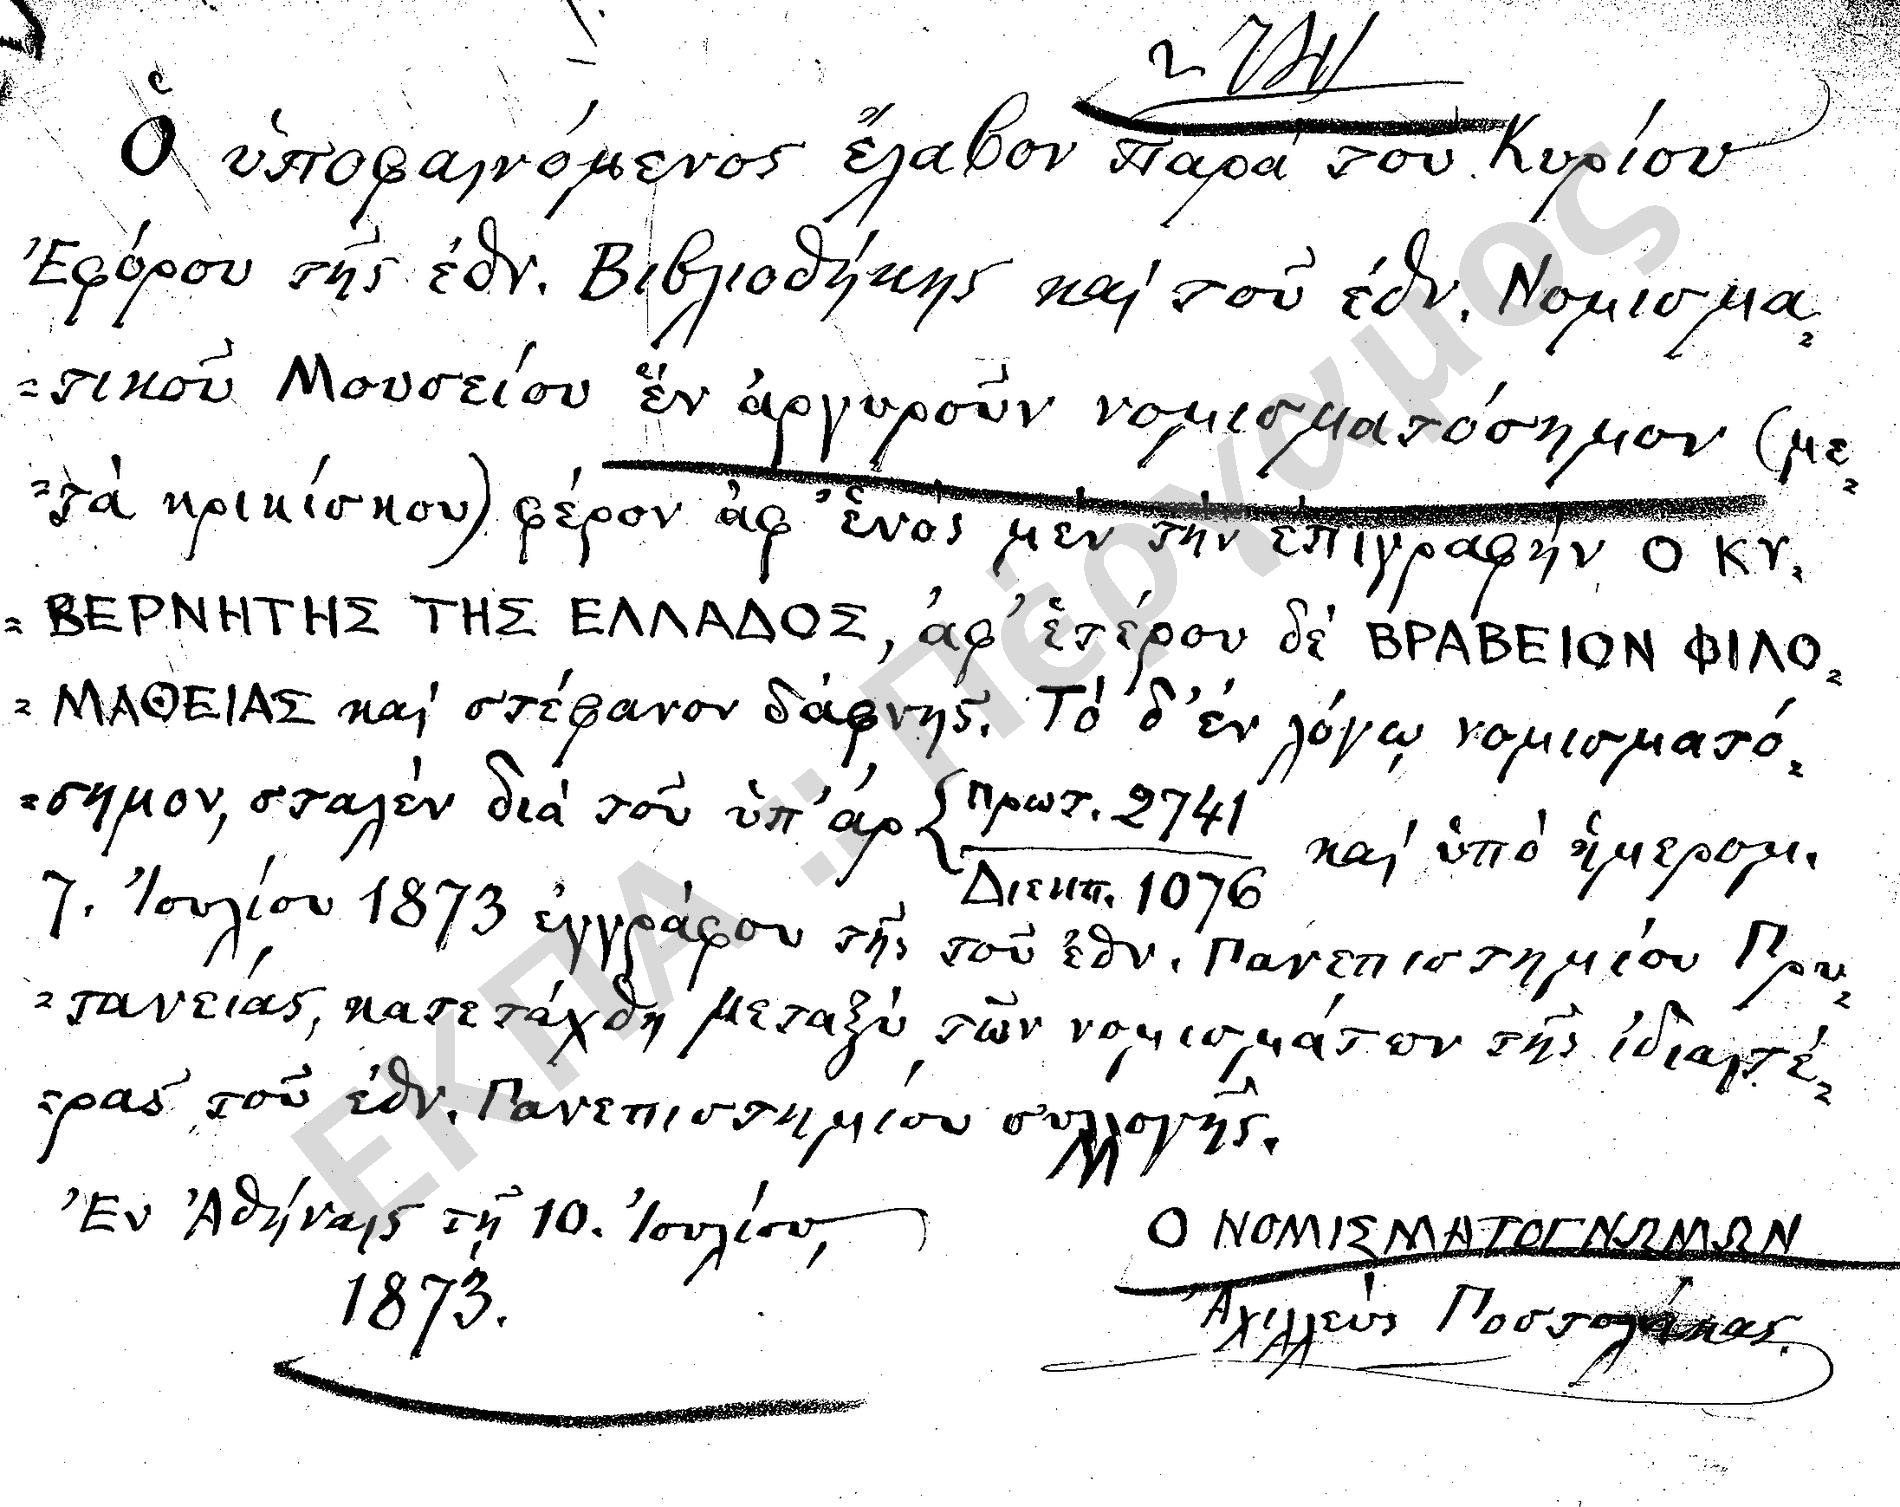 2741
Ὁ ὑποφαινόμενος ἔλαβον παρὰ του Κυρίου
Ἐφόρου τῆς ἐθν. Βιβλιοθήκης καὶ τοῦ ἐθν. Νομισμα=
=τικοῦ Μουσείου ἓν ἀργυροῦν νομισματόσημον (με=
=τὰ κρικίσκου) φέρον ἀφ' ἑνὸς μὲν τὴν ἐπιγραφὴν Ο ΚΥ=
=ΒΕΡΝΗΤΗΣ ΤΗΣ ΕΛΛΑΔΟΣ, ἀφ' ἑτέρου δὲ ΒΡΑΒΕΙΟΝ ΦΙΛΟ=
=ΜΑΘΕΙΑΣ καὶ στέφανον δάφνης. Τὸ δ' ἐν λόγῳ νομισματό=
=σημον, σταλὲν διὰ τοῦ ὑπ' ἀρ { Πρωτ. 2741 καὶ ὑπὸ ἡμερομ.
Διεκπ. 1076
7. Ἰουλίου 1873 ἐγγράφου τῆς τοῦ ἐθν. Πανεπιστημίου Πρυ=
=τανείας, κατετάχθη μεταξὺ τῶν νομισμάτων τῆς ἰδιαιτέ=
=ρας τοῦ ἐθν. Πανεπιστημίου συλλογῆς.
Ἐν Ἀθήναις τῇ 10. Ἰουλίου,
1873.
Ο ΝΟΜΙΣΜΑΤΟΓΝΩΜΩΝ
Ἀχιλλεὺς Ποστολάκας.
ΕΚΠΑ :: Πέργαμος